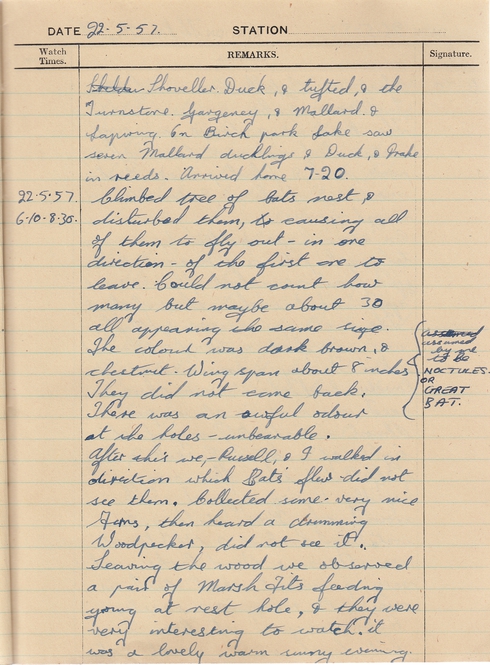 DATE 22-5-57. STATION
Watch Times. REMARKS. Signature.
Shoveller. Duck, & tufted, & the
Turnstone. Gargeney, & Mallard. &
Lapwing. On Birch park Lake saw
seven Mallard ducklings & Duck, & Drake
in reeds. Arrived home 7-20.
22-5-57. Climbed tree of bats nest, &
6-10-8-30. disturbed them, causing all
of them to fly out - in one
direction - of the first one to
leave. Could not count how
many but maybe about 30
all appearing the same size.
The colour was dark brown, &
chestnut. Wing span about 8 inches
They did not come back.
There was an awful odour
at the holes - unbearable.
assumed
assumed
by me
to be
NOCTULES.
OR
GREAT
BAT.
After this we, - Russell, & I walked in
direction which Bats flew did not
see them. Collected some very nice
Ferns, then heard a drumming
Woodpecker, did not see it.
Leaving the wood we observed
a pair of Marsh Tits feeding
young at nest hole, & they were
very interesting to watch. it
was a lovely warm sunny evening.